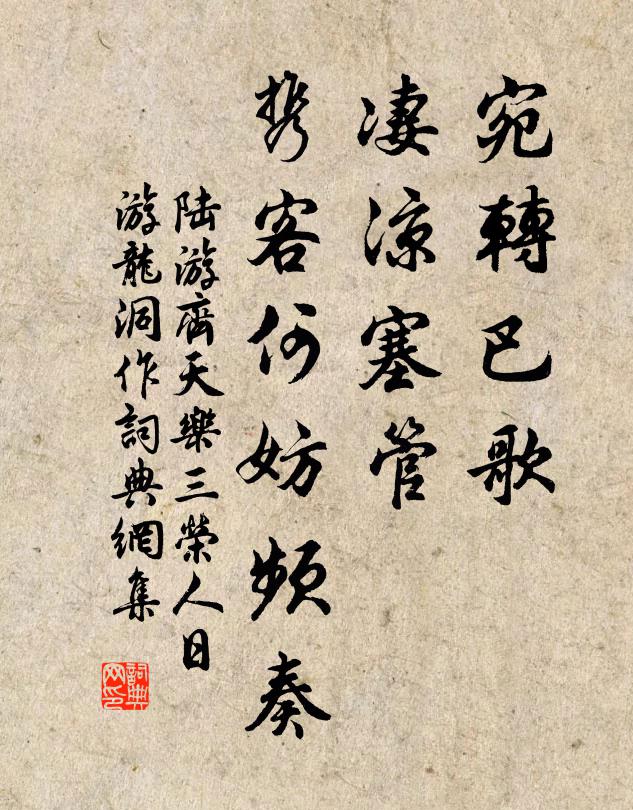 宛轉巴歌
凄涼塞管
携客何妨頻奏
陆游齊天樂三榮人日
游龍洞作詞典網集
詞典网印